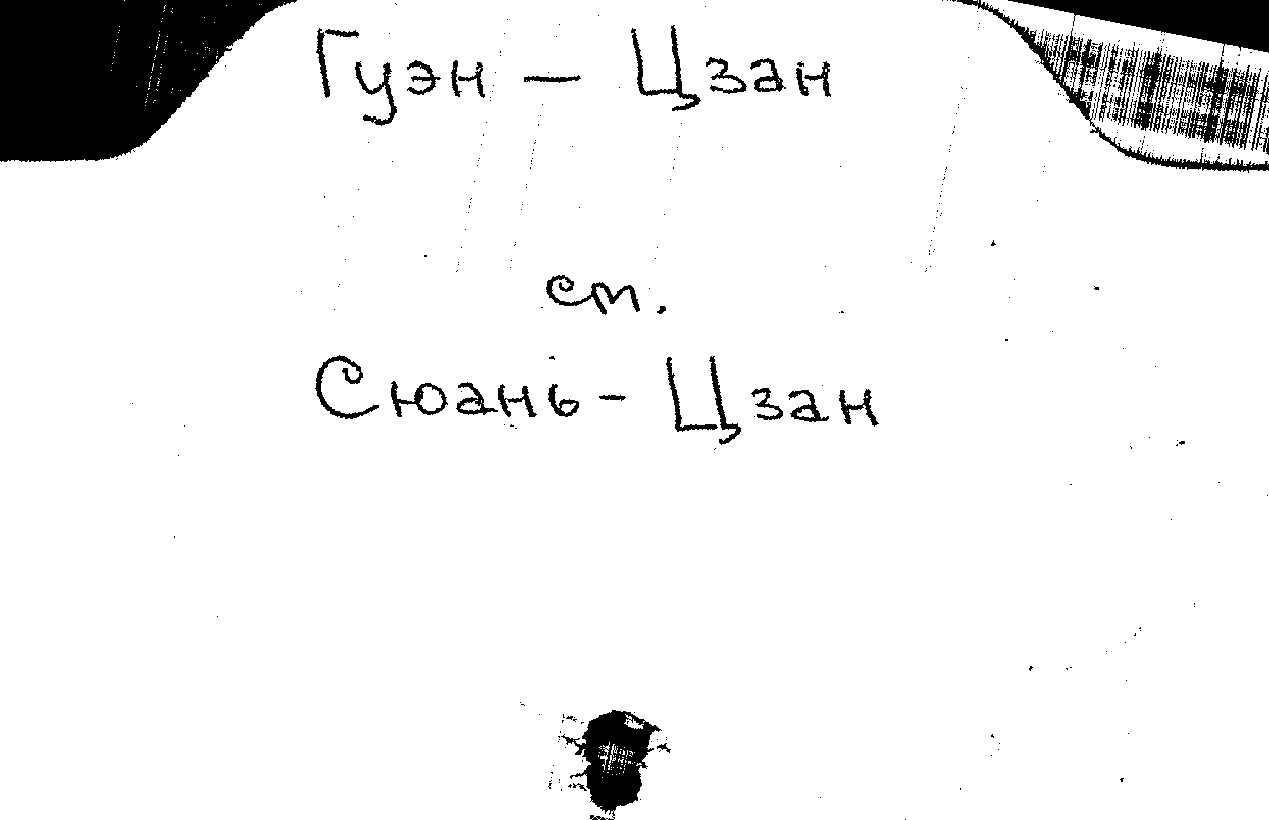 Гуэн – Цзан
ст.
Сюань- Цзан